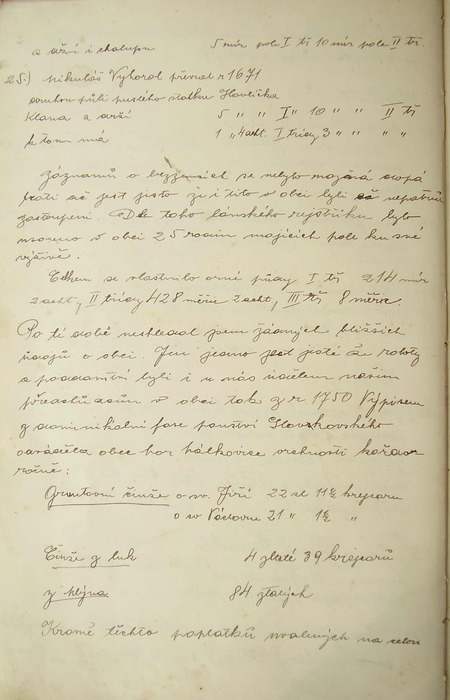 a drží i chalupu 5 měr pole I tř 10 měr pole II tř.
25.) Mikuláš Vyhoral převzal r 1671
druhou půli pustého statku Havlíčka
Klana a drží 5 „ „ I„ 10 „ „ II tř
k tomu má 1 „ 4acht I třídy 3 „ „ „ „
Záznamů o bezzemcích se nebylo možná dopá
trati ač jest jisto že i tito v obci byli nepatrně
zastoupeni. Dle toho lánského rejstříku bylo
usazeno v obci 25 rodin majících pole ku své
výživě.
Celkem se vlastnilo orné půdy I tř 214 měr
2 acht, II třídy 428 měřic 2 acht, III tř 8 měřic.
Po té době neshledal jsem žádných bližších
údajů o obci. Jen jedno jest jisté že roboty
a poddanství byli i u nás údělem našim
předchůdcům v obci tak z r 1750 Výpisem
z dominikální fase panství Slavkovského
odváděla obec hor. vrchnosti každo
ročně:
Gruntovní činže o sv. Jiří 22 zl 11½ krejcaru
o sv Václavu 21 „ 1½ „
Činže z luk 4 zlaté 39 krejcarů
z mlýna 84 zlatých
Kromě těchto poplatků uvalených na celou